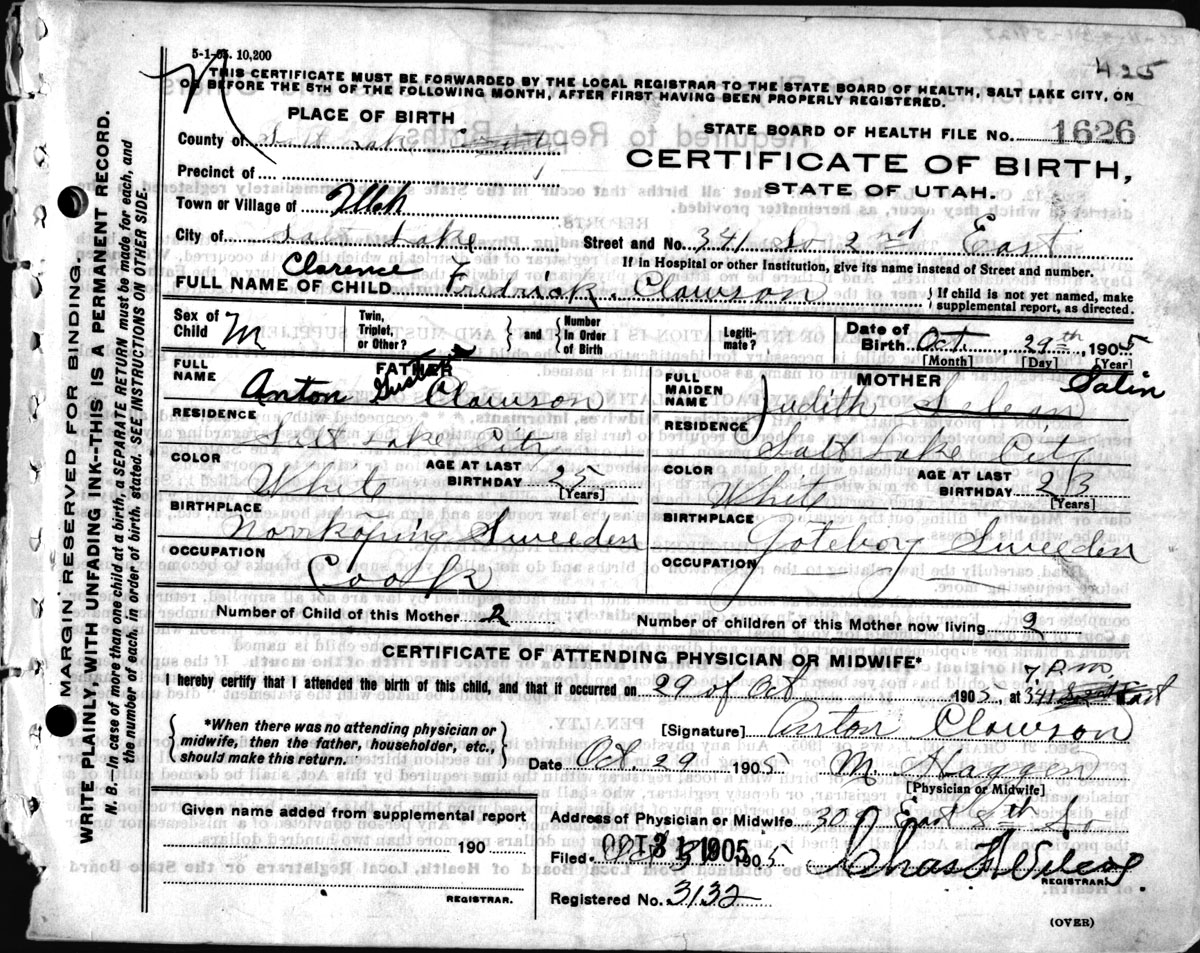 5-1-05. 10,200
425
THIS CERTIFICATE MUST BE FORWARDED BY THE LOCAL REGISTRAR TO THE STATE BOARD OF HEALTH, SALT LAKE CITY, ON
OR BEFORE THE 5TH OF THE FOLLOWING MONTH, AFTER FIRST HAVING BEEN PROPERLY REGISTERED.
PLACE OF BIRTH
STATE BOARD OF HEALTH FILE NO. 1626
County of Salt Lake
CERTIFICATE OF BIRTH,
Precinct of
STATE OF UTAH.
Town or Village of Utah
City of Salt Lake
Street and No. 341 So 2nd East
If in Hospital or other Institution, give its name instead of Street and number.
FULL NAME OF CHILD Clarence Fredrick Clawson
If child is not yet named, make
supplemental report, as directed.
Sex of Child M
Twin, Triplet, or Other?
and
Number In Order of Birth
Legitimate?
Date of Birth Oct 29th, 1905
[Month] [Day] [Year]
FATHER
FULL NAME Anton Gustave Clawson
RESIDENCE Salt Lake City
COLOR White
AGE AT LAST BIRTHDAY 25 [Years]
BIRTHPLACE Norrkoping Sweeden
OCCUPATION Cook
MOTHER
FULL MAIDEN NAME Judith Selean Salin
RESIDENCE Salt Lake City
COLOR White
AGE AT LAST BIRTHDAY 23 [Years]
BIRTHPLACE Goteborg Sweeden
OCCUPATION
Number of Child of this Mother 2
Number of children of this Mother now living 2
CERTIFICATE OF ATTENDING PHYSICIAN OR MIDWIFE*
I hereby certify that I attended the birth of this child, and that it occurred on 29 of Oct 1905, at 7 P.m. 341 S 2nd East
*When there was no attending physician or
midwife, then the father, householder, etc.,
should make this return.
[Signature] Anton Clawson
Date Oct. 29 1905 M. Haggen
[Physician or Midwife]
Given name added from supplemental report
190
REGISTRAR.
Address of Physician or Midwife 309 East 8th So
Filed OCT 31 1905 1905 Chas
REGISTRAR.
Registered No. 3132
(OVER)
MARGIN RESERVED FOR BINDING.
WRITE PLAINLY, WITH UNFADING INK--THIS IS A PERMANENT RECORD.
N. B.--In case of more than one child at a birth, a SEPARATE RETURN must be made for each, and
the number of each, in order of birth, stated. SEE INSTRUCTIONS ON OTHER SIDE.